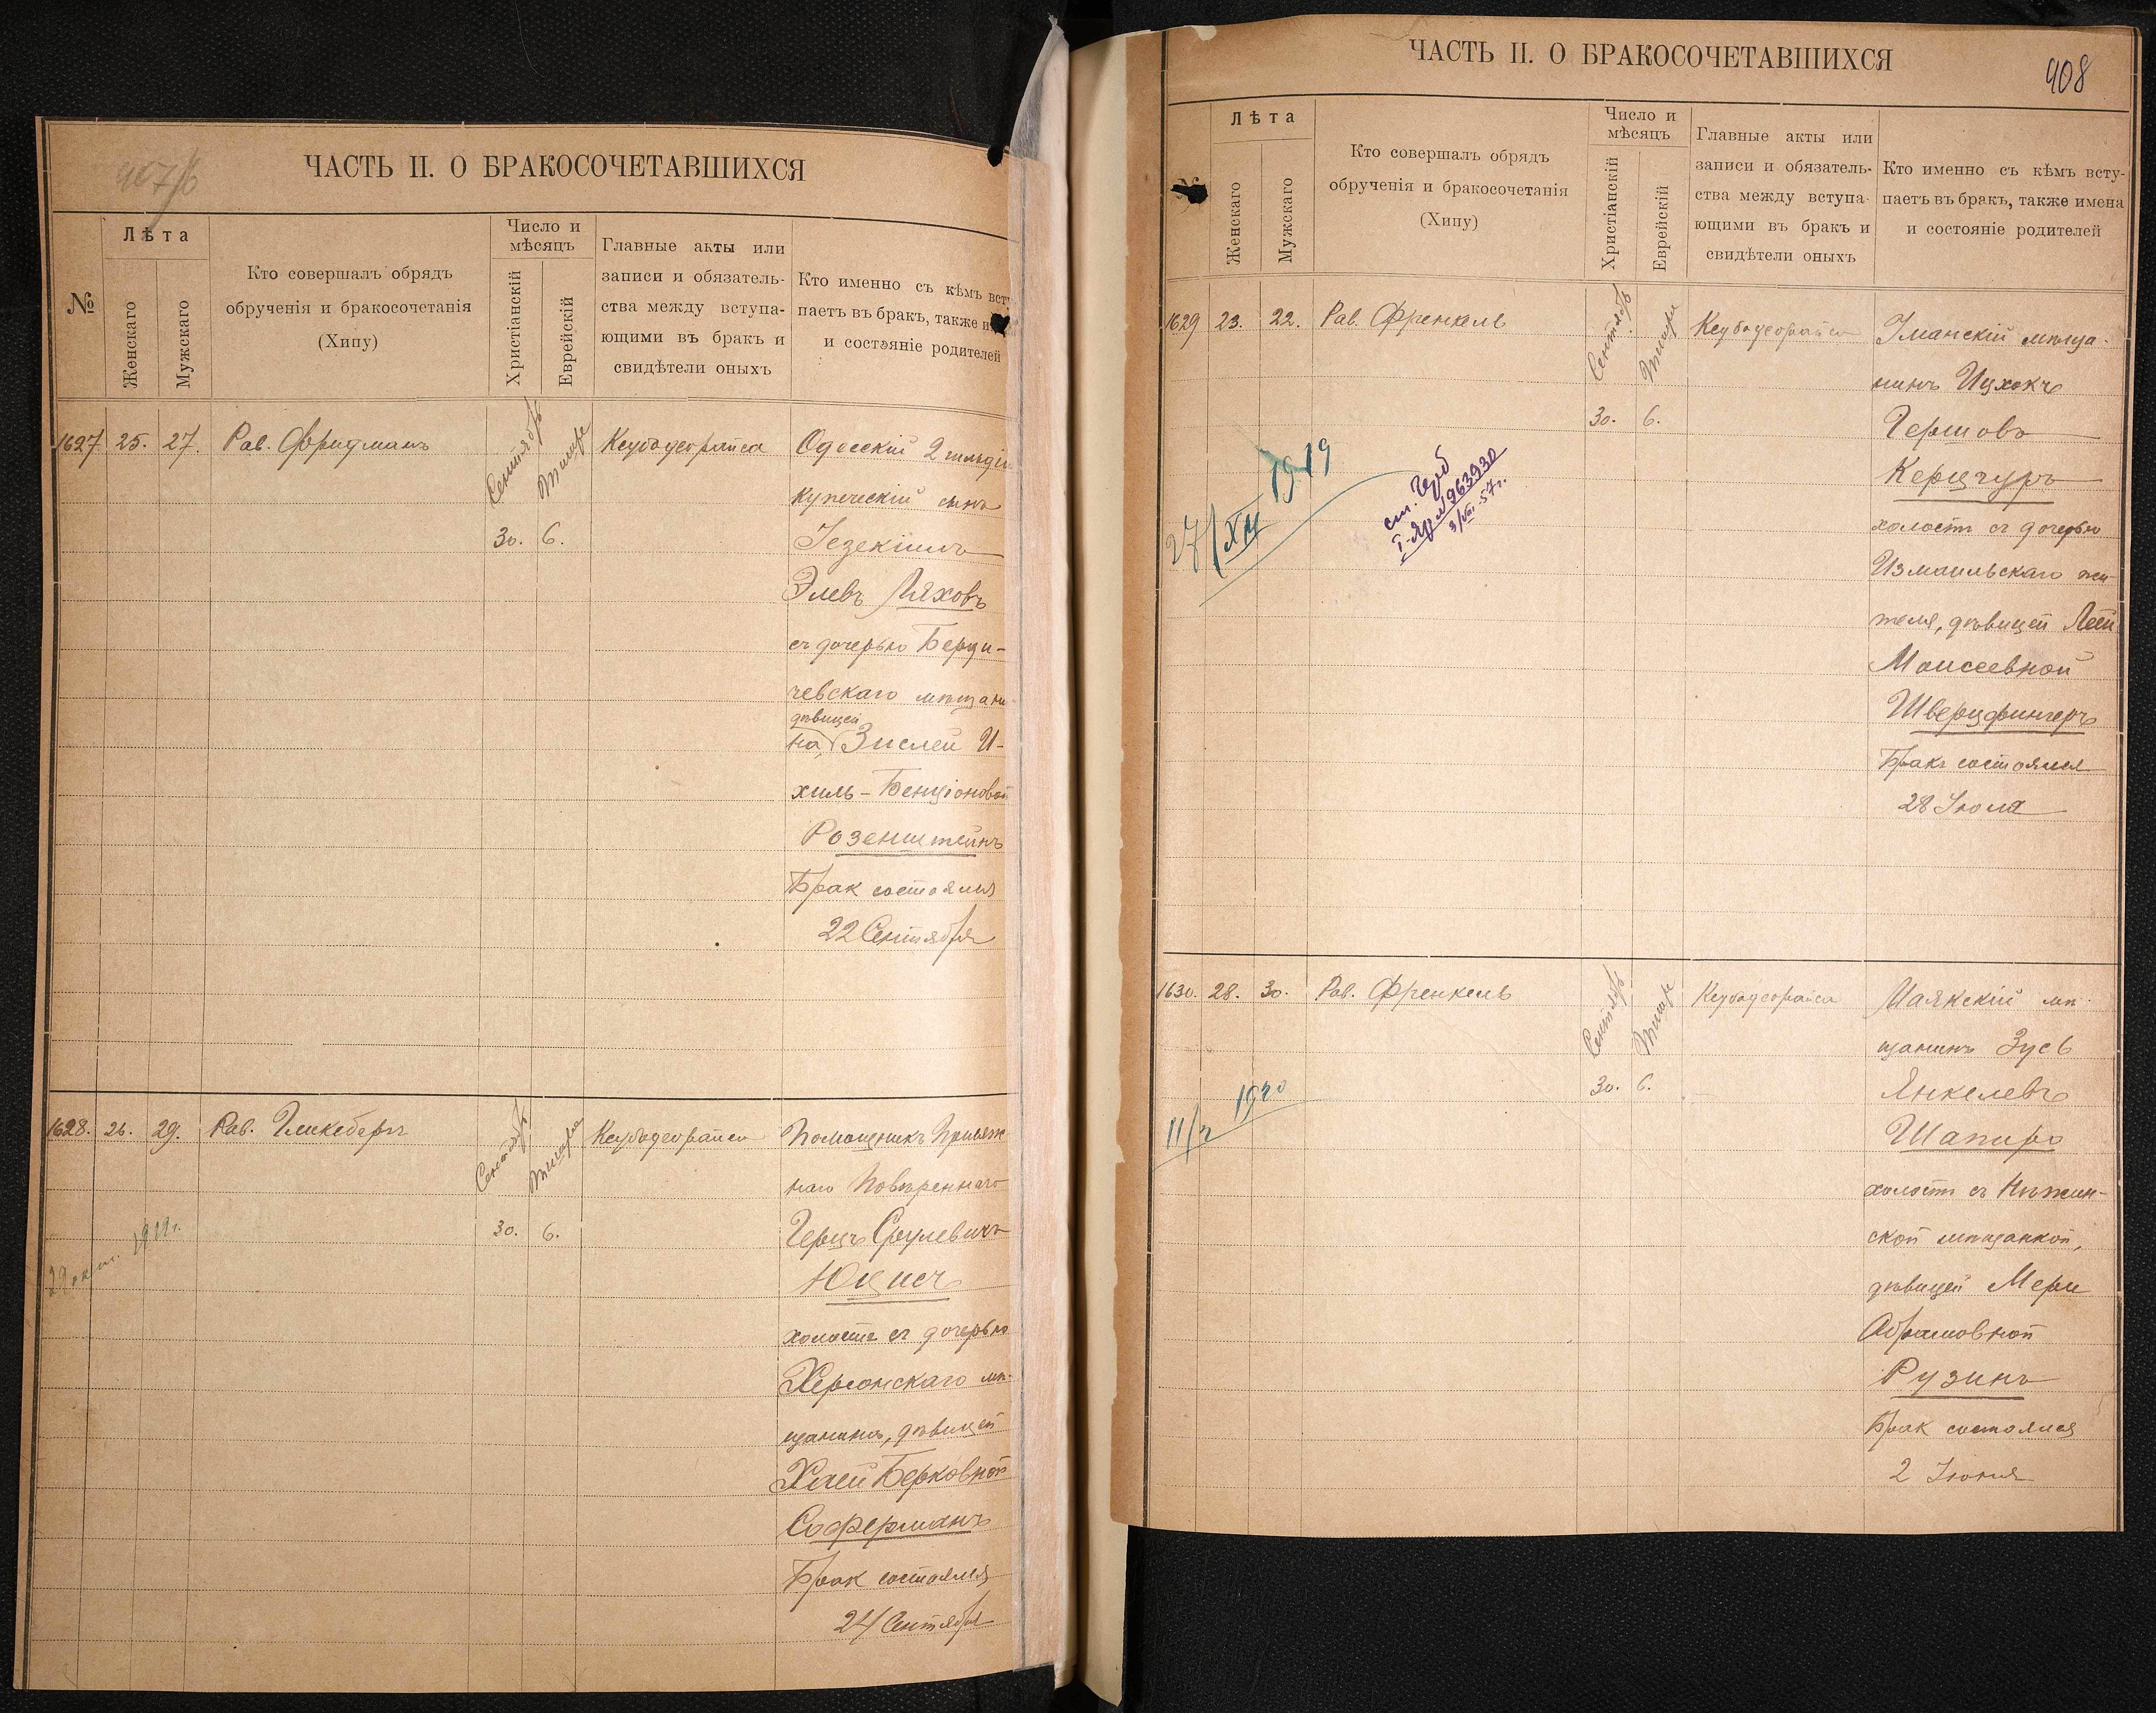 407/б
ЧАСТЬ II. О БРАКОСОЧЕТАВШИХСЯ
№
Лѣта
Женскаго
Мужскаго
Кто совершалъ обрядъ
обрученія и бракосочетанія
(Хипу)
Число и
мѣсяцъ
Христіанскій
Еврейскій
Главные акты или
записи и обязатель-
ства между вступа-
ющими въ бракъ и
свидѣтели оныхъ
Кто именно съ кѣмъ вст
паетъ въ бракъ, также и
и состояніе родителей
1627 25. 27. Рав. Фридманъ
Сентябрь
Тишре
30. 6.
Ксубодеорайса
Одесскій 2 гильдіи
купеческій сынъ
Іезекіиль
Элевъ Ляховъ
съ дочерью Берди-
чевскаго мѣщани
дѣвицей
на, Зислей И-
хиль-Бенціоновой
Розенштейнъ
Брак состоялся
22 Сентября
1628. 26. 29. Рав. Гликсбергъ
Сентябрь
Тишре
30. 6.
Ксубодеорайса
Помощникъ Присяж
наго Повѣреннаго
Герцъ Срулевичъ
Юкисъ
холостъ съ дочерью
Херсонскаго мѣ-
щанина, дѣвицей
Хаей Берковной
Соферманъ
Брак состоялся
24 Сентября
29 окт. 1919г.
ЧАСТЬ II. О БРАКОСОЧЕТАВШИХСЯ
408
№
Лѣта
Женскаго
Мужскаго
Кто совершалъ обрядъ
обрученія и бракосочетанія
(Хипу)
Число и
мѣсяцъ
Христіанскій
Еврейскій
Главные акты или
записи и обязатель-
ства между вступа-
ющими въ бракъ и
свидѣтели оныхъ
Кто именно съ кѣмъ всту-
паетъ въ бракъ, также имена
и состояніе родителей
1629 23. 22. Рав. Френкель
Сентябрь
Тишре
30. 6.
Ксубодеорайса
Уманскій мѣща-
нинъ Ицхокъ
Гершовъ
Керцчуръ
холост съ дочерью
Измаильскаго жи-
теля, дѣвицей Леей
Моисеевной
Шверцфингеръ
Бракъ состоялся
28 Іюля
27/XII 1919
I-ЯР №963930
3/VIII-57г.
1630. 28. 30. Рав. Френкель
Сентябрь
Тишре
30. 6.
Ксубодеорайса
Маякскій мѣ-
щанинъ Зусь
Янкелевъ
Шапиро
холостъ съ Нѣжин-
ской мѣщанкой,
дѣвицей Мери
Абрамовной
Рузинъ
Брак состоялся
2 Іюня
1920